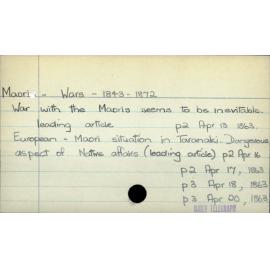 Maori - Wars - 1843-1872
War with the Maoris seems to be inevitable.
leading article p2 Apr 13 1863.
European - Maori situation in Taranaki. Dangerous
aspect of Native affairs (leading article) p2 Apr 16
p2 Apr 17, 1863
p3 Apr 18, 1863
p3 Apr 20, 1863
DAILY TELEGRAPH